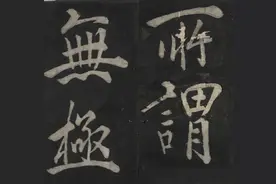 所謂
無極